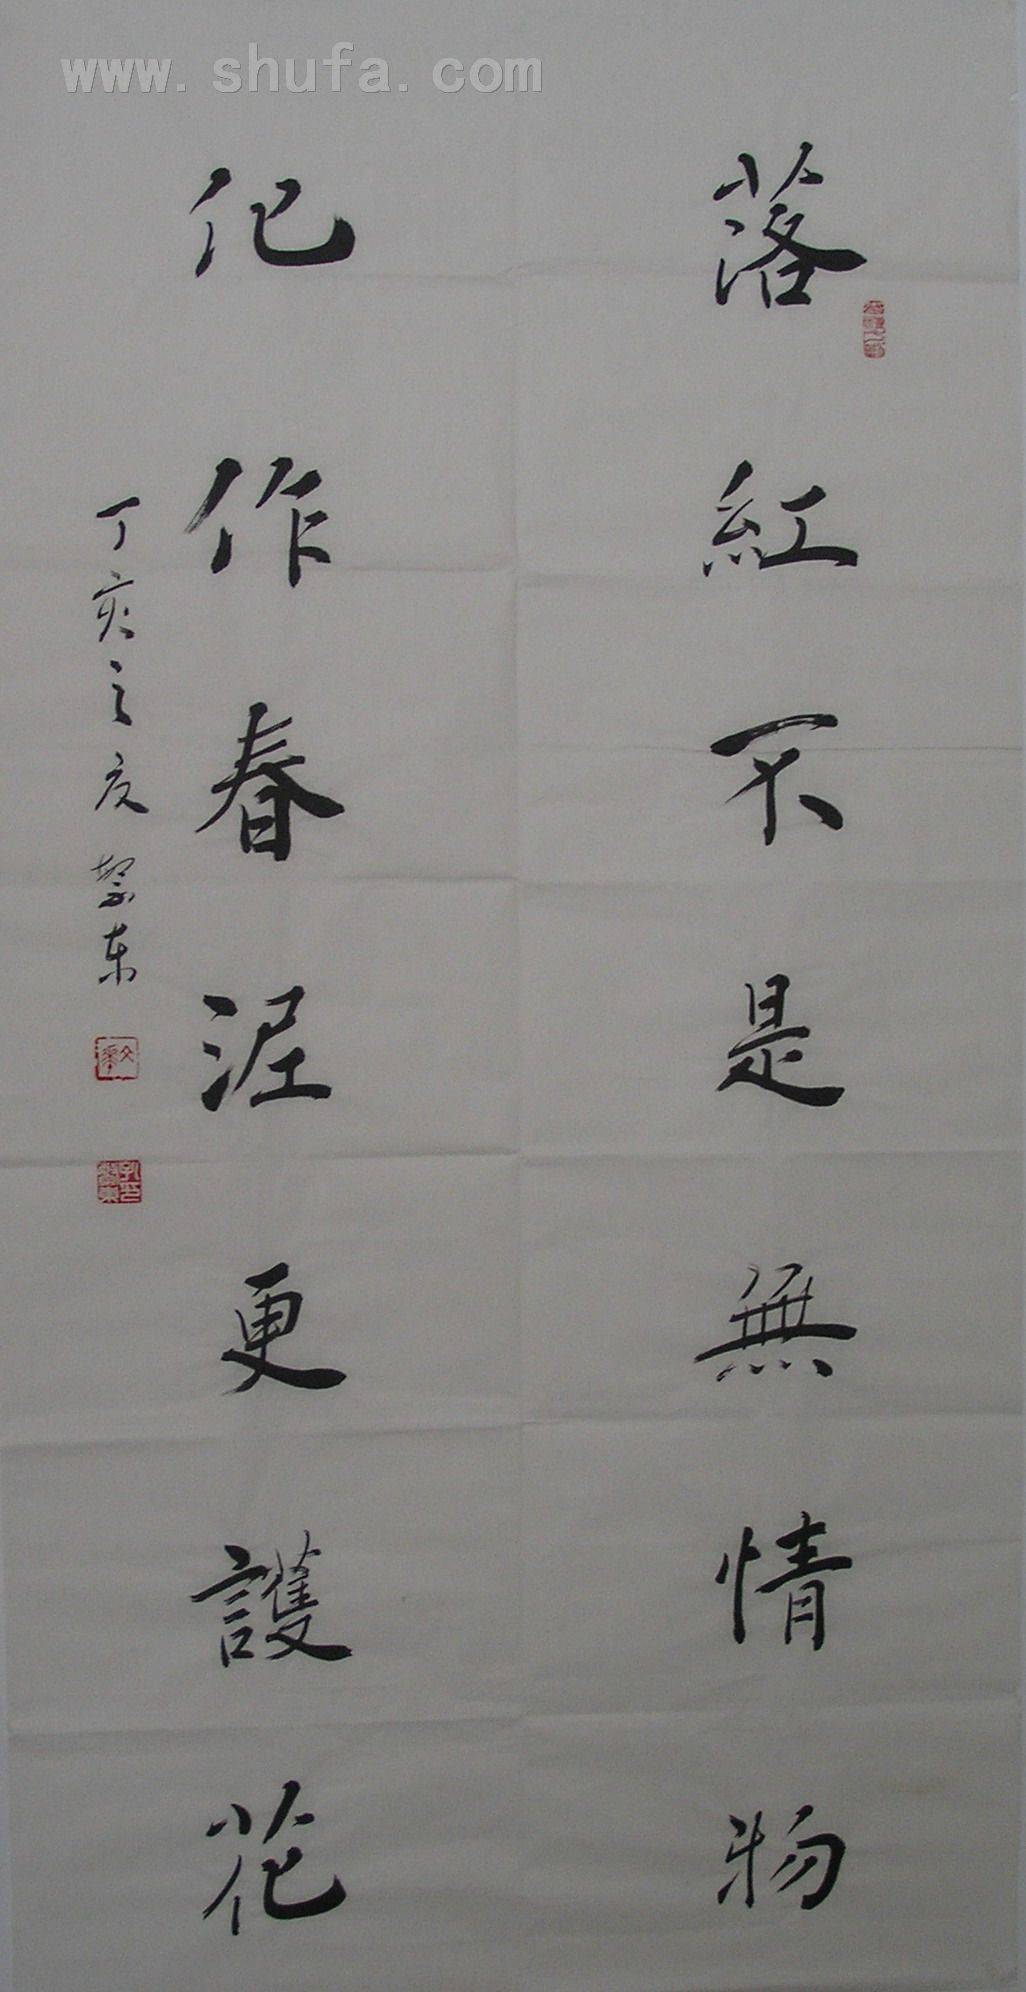 www.shufa.com
落紅不是無情物
化作春泥更護花
丁亥之夏 東